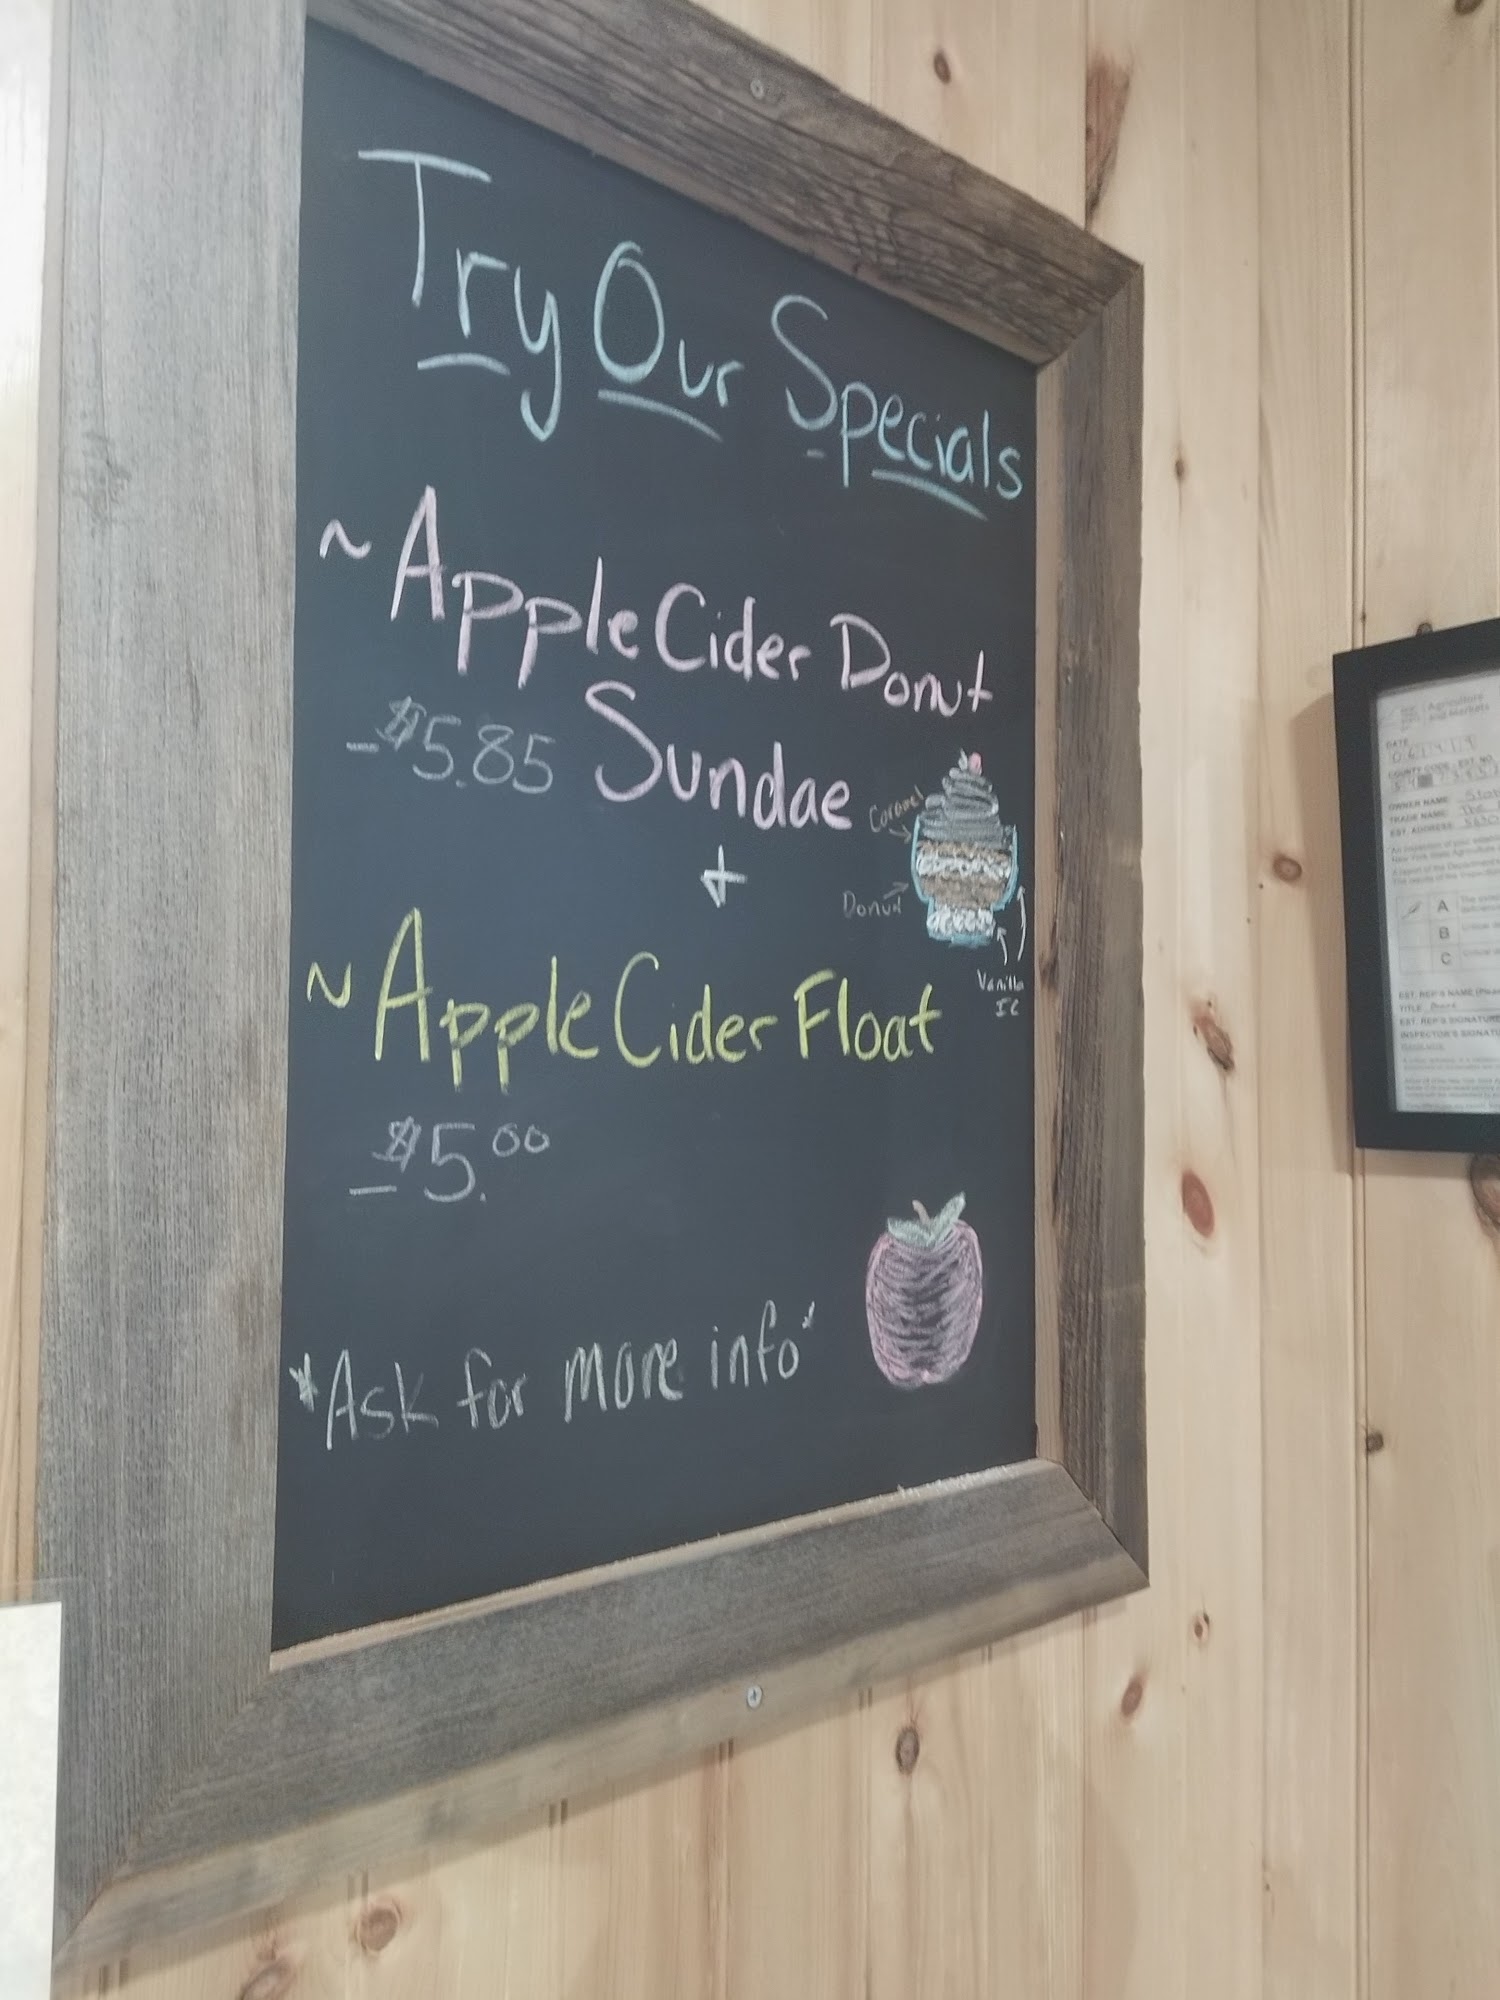 Try Our Specials
~ Apple Cider Donut
- $5.85 Sundae
+
Caramel
Donut
Vanilla
IC
~ Apple Cider Float
- $5.00
*Ask for more info*
Agriculture
and Markets
DATE
COUNTY CODE EST. NO.
OWNER NAME:
TRADE NAME: The
EST. ADDRESS:
A
B
C
EST. REP'S NAME
TITLE
EST. REP'S SIGNATURE
INSPECTOR'S